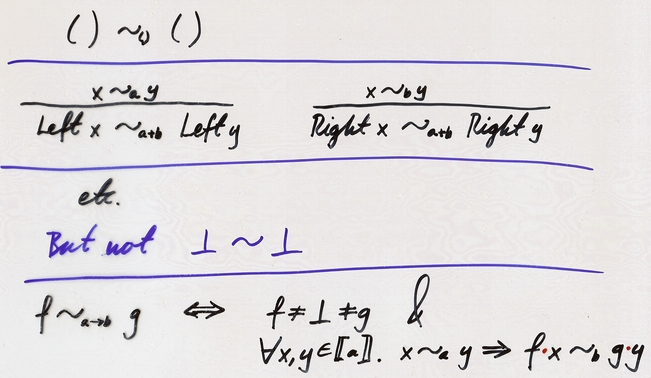 () ~₍₎ ()
x ~ₐ y
Left x ~ₐ₊b Left y
x ~b y
Right x ~ₐ₊b Right y
etc.
But not ⊥ ~ ⊥
f ~ₐ→b g ⇔ f ≠ ⊥ ≠ g &
∀x,y ∈ ⟦a⟧. x ~ₐ y ⇒ f·x ~b g·y